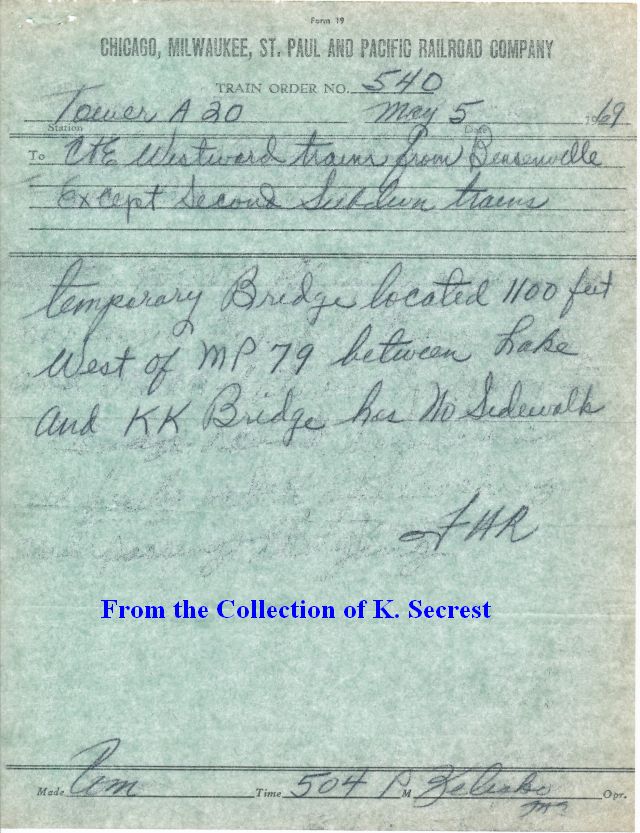 Form 19
CHICAGO, MILWAUKEE, ST. PAUL AND PACIFIC RAILROAD COMPANY
TRAIN ORDER NO. 540
Tower A 20 May 5 1969
Station Date
To C&E Westward trains from Bensenville
Except Second Subdivn trains
temporary Bridge located 1100 feet
West of MP 79 between Lake
And KK Bridge has No Sidewalk
FHR
From the Collection of K. Secrest
Made Com Time 504 P M Opr.